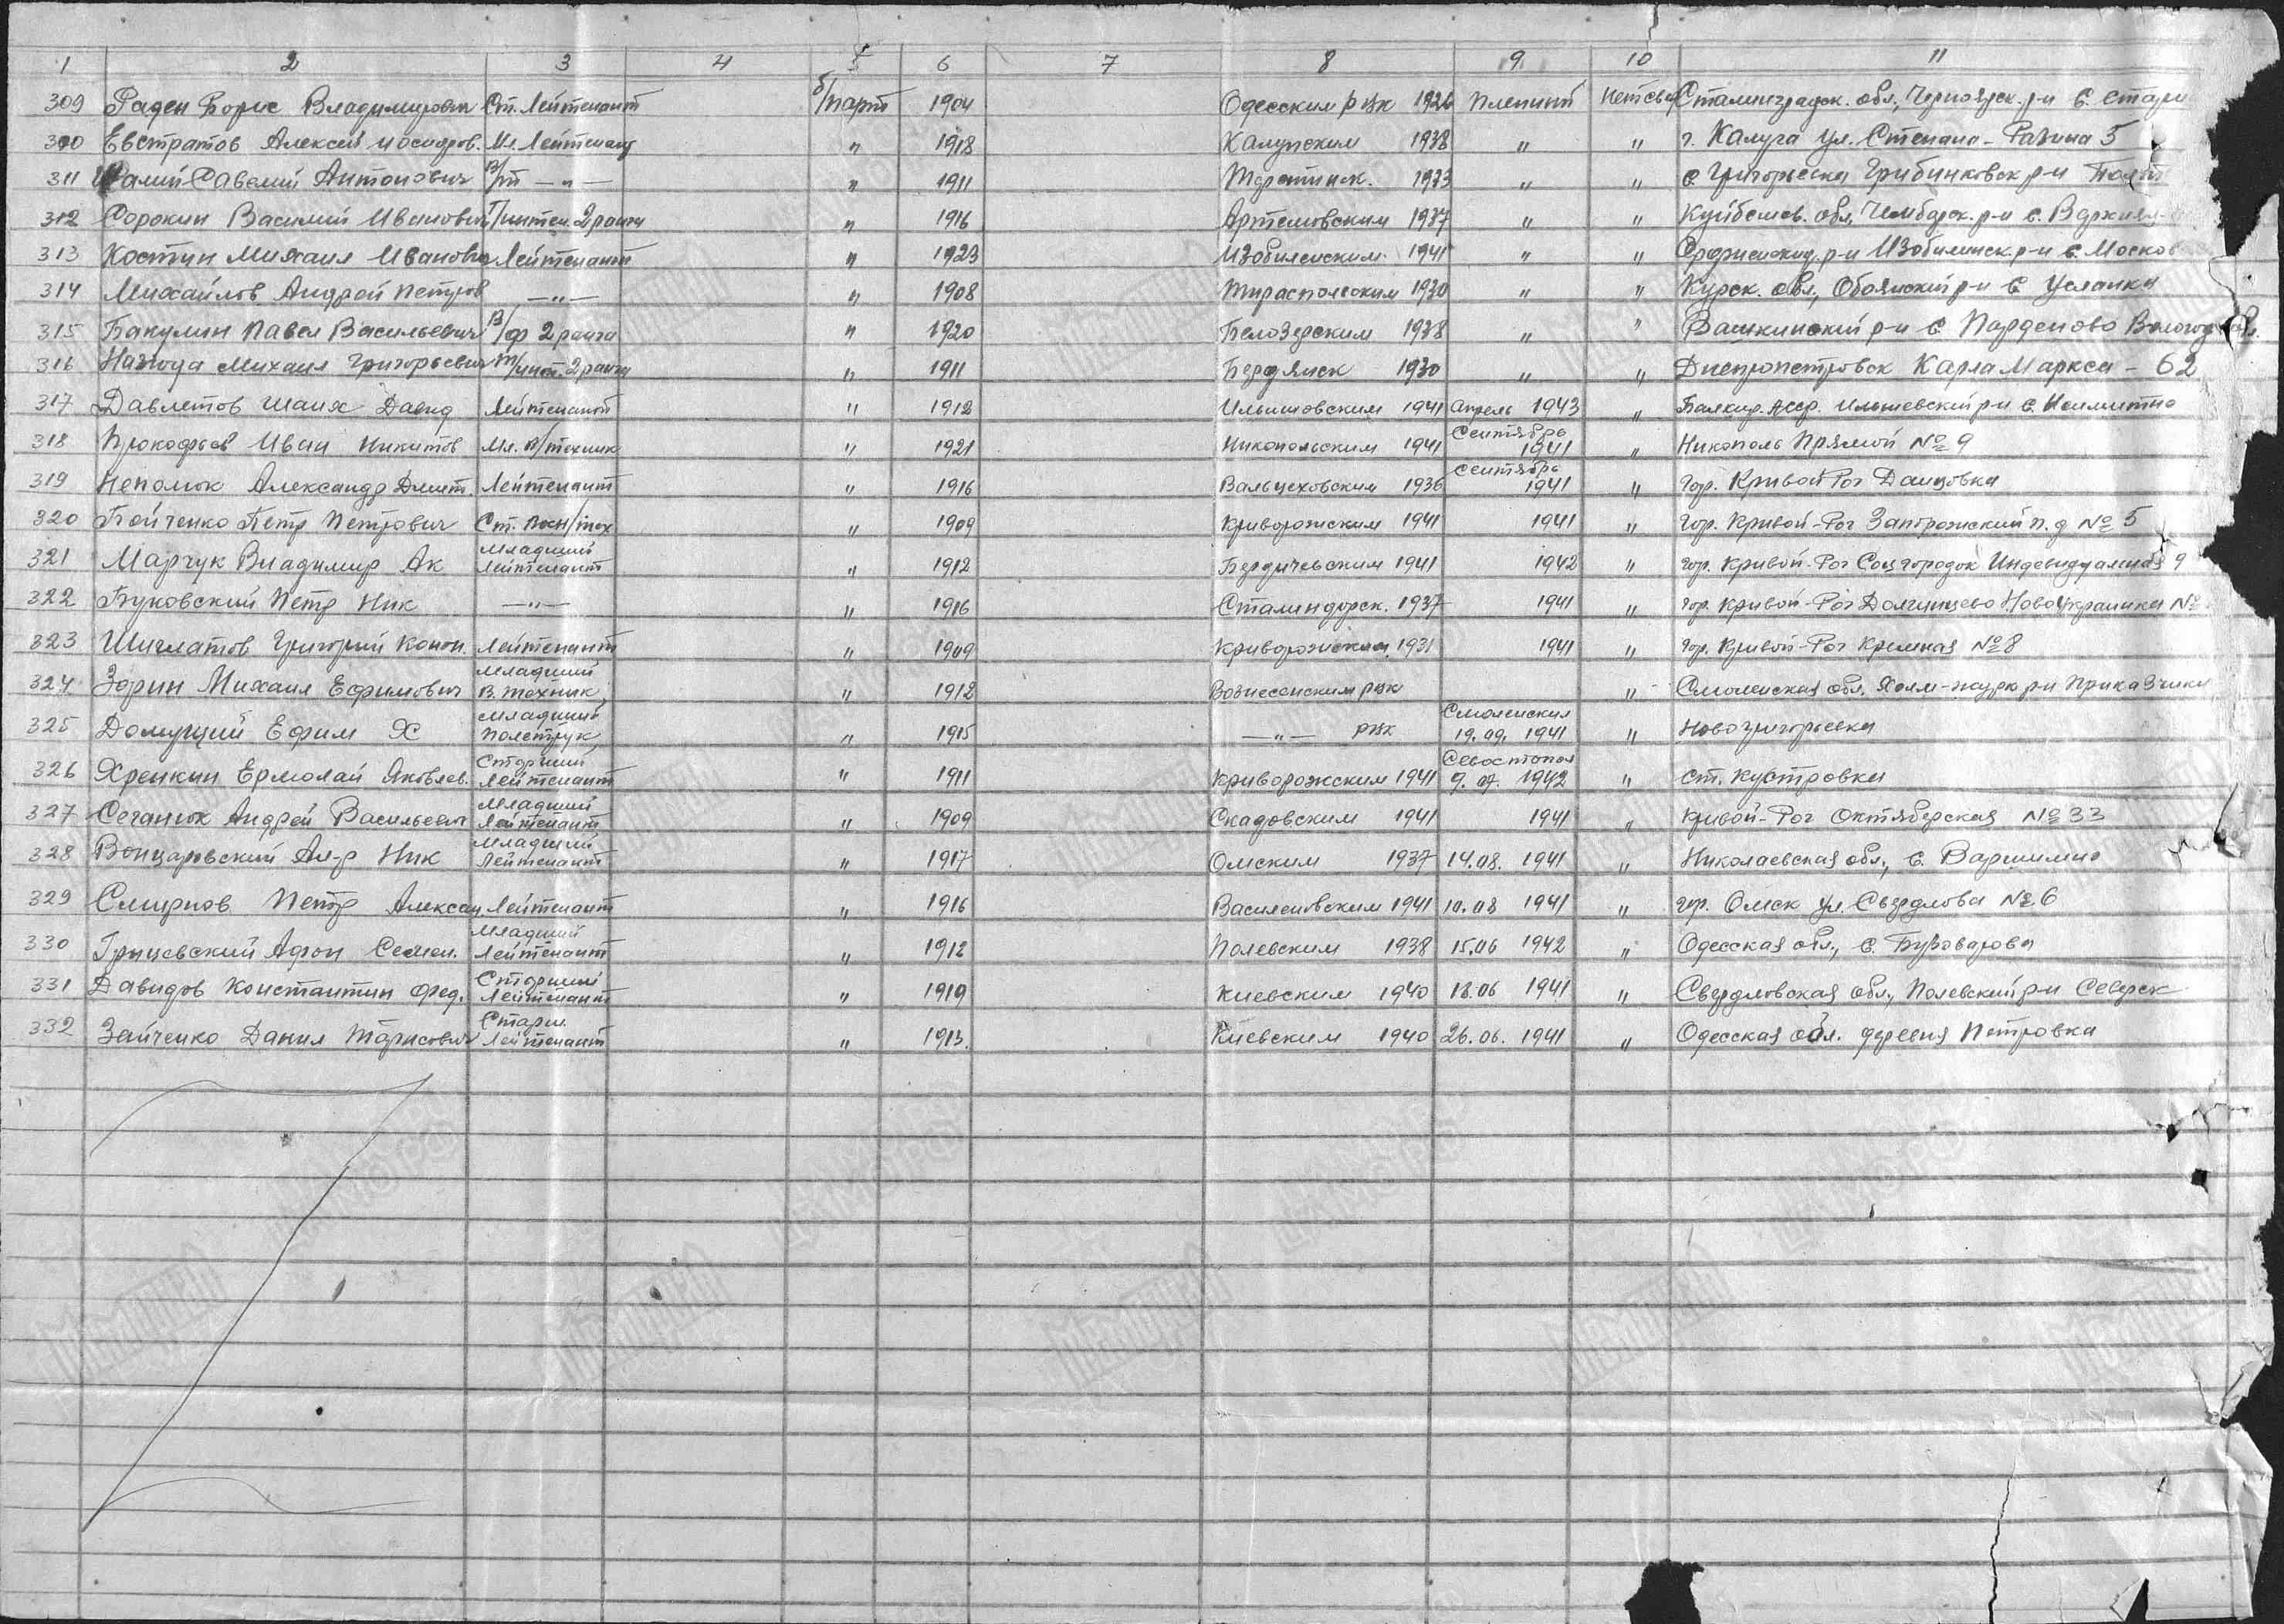 1 2 3 4 5 6 7 8 9 10 11
309 Раден Борис Владимирович Ст. Лейтенант б/парт 1904 Одесским рвк 1926 Пленит Сталинградск. обл., Черноярск. р-н с.
310 Евстратов Алексей Мл. Лейтенант " 1918 Калужским 1938 " " г. Калуга ул. Степана-Разина 5
311 Савелий Антонович В/т —"— " 1911 1933 " " с. р-н
312 Сорокин Василий Иванович Т/интен. 2 ранга " 1916 Артемовским 1937 " " Куйбышев. обл. Чембарск. р-н с.
313 Костин Михаил Иванович Лейтенант " 1923 Изобиленским 1941 " " р-н Изобилинск. р-н с. Москов
314 Михайлов Андрей Петров —"— " 1908 Тираспольским 1930 " " Курск. обл., Обоянский р-н с Усланка
315 Бакулин Павел Васильевич В/ф 2 ранга " 1920 Белозерским 1938 " " Вашкинский р-н с Парденово Вологод обл.
316 Михаил Григорьевич Т/инт. 2 ранга " 1911 Бердянск 1930 " " Днепропетровск Карла Маркса - 62
317 Давлетов Шаих Давид Лейтенант " 1912 1941 апрель 1943 " р-н с.
318 Прокофьев Иван Никитов Мл. в/техник " 1921 Никопольским 1941 Сентябрь 1941 " Никополь Прямой № 9
319 Непомок Александр Дмит. Лейтенант " 1916 1936 Сентябрь 1941 " Гор. Кривой Рог Даицовка
320 Бойченко Петр Петрович Ст. Воен/тех " 1909 Криворожским 1941 1941 " Гор. Кривой-Рог п. д № 5
321 Марчук Владимир Ак Младший Лейтенант " 1912 Бердичевским 1941 1942 " гор. Кривой-Рог Соцгородок 9
322 Буковский Петр Ник —"— " 1916 Сталиндорск. 1937 1941 " гор. Кривой-Рог Долгинцево НовоУкраинка №
323 Шиглатов Григорий Конон. Лейтенант " 1909 Криворожским 1931 1941 " гор. Кривой-Рог № 8
324 Зорин Михаил Ефимович Младший В. техник " 1912 Вознесенским рвк " Смоленская обл. р-н
325 Домущий Ефим Х Младший политрук " 1915 —"— рвк Смоленская 19.09. 1941 " Новогригорьевка
326 Хренкин Ермолай Яковлев. Старший Лейтенант " 1911 Криворожским 1941 Севостопол 9. 07. 1942 " ст. Кустровка
327 Сеганюк Андрей Васильевич Младший Лейтенант " 1909 Скадовским 1941 1941 " Кривой-Рог Октябрская № 33
328 Вонцаровский Ал-р Ник Младший Лейтенант " 1917 Омским 1937 14.08. 1941 " Николаевская обл., с.
329 Смирнов Петр Алексан Лейтенант " 1916 Василковским 1941 10.08 1941 " гор. Омск ул. Свердлова № 6
330 Грицевский Афон Семен. Младший Лейтенант " 1912 Полевским 1938 15.06 1942 " Одесская обл., с.
331 Давидов Константин Фед. Старший Лейтенант " 1919 Киевским 1940 18.06 1941 " Свердловская обл., Полевский р-н Северск
332 Зайченко Данил Тарисович Старш. Лейтенант " 1913. Киевским 1940 26.06. 1941 " Одесская обл. деревня Петровка